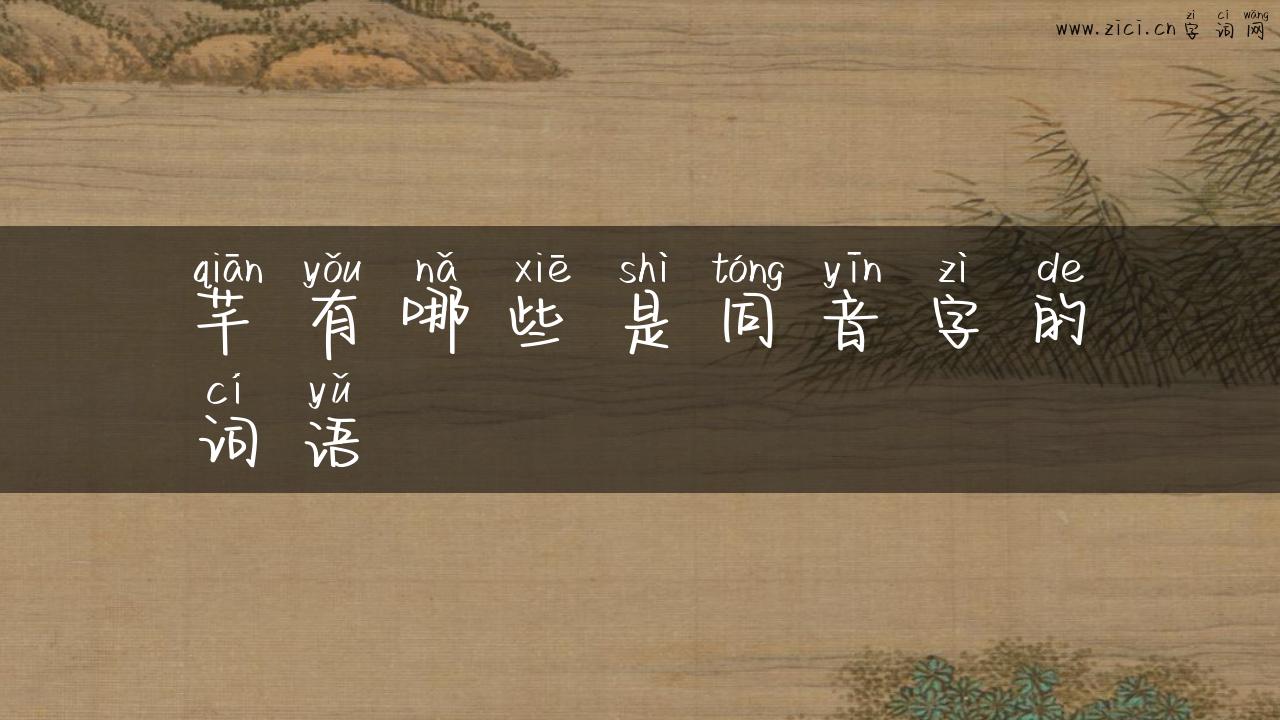 zì cí wǎng
www.zici.cn字词网
qiān yǒu nǎ xiē shì tóng yīn zì de
芊有哪些是同音字的
cí yǔ
词语